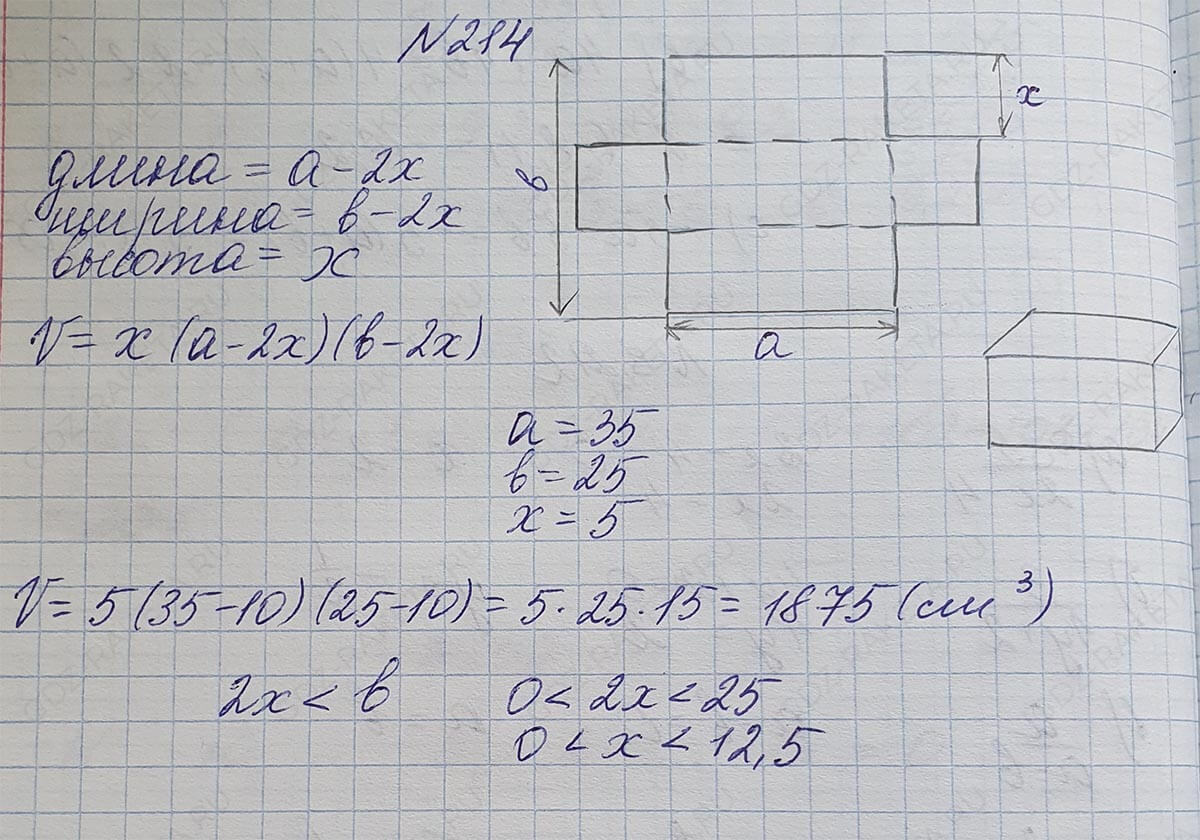 N214
x
в
a
длина = a - 2x
ширина = в - 2x
высота = x
V = x (a - 2x)(в - 2x)
a = 35
в = 25
x = 5
V = 5(35-10)(25-10) = 5·25·15 = 1875 (см³)
2x < в
0 < 2x < 25
0 < x < 12,5